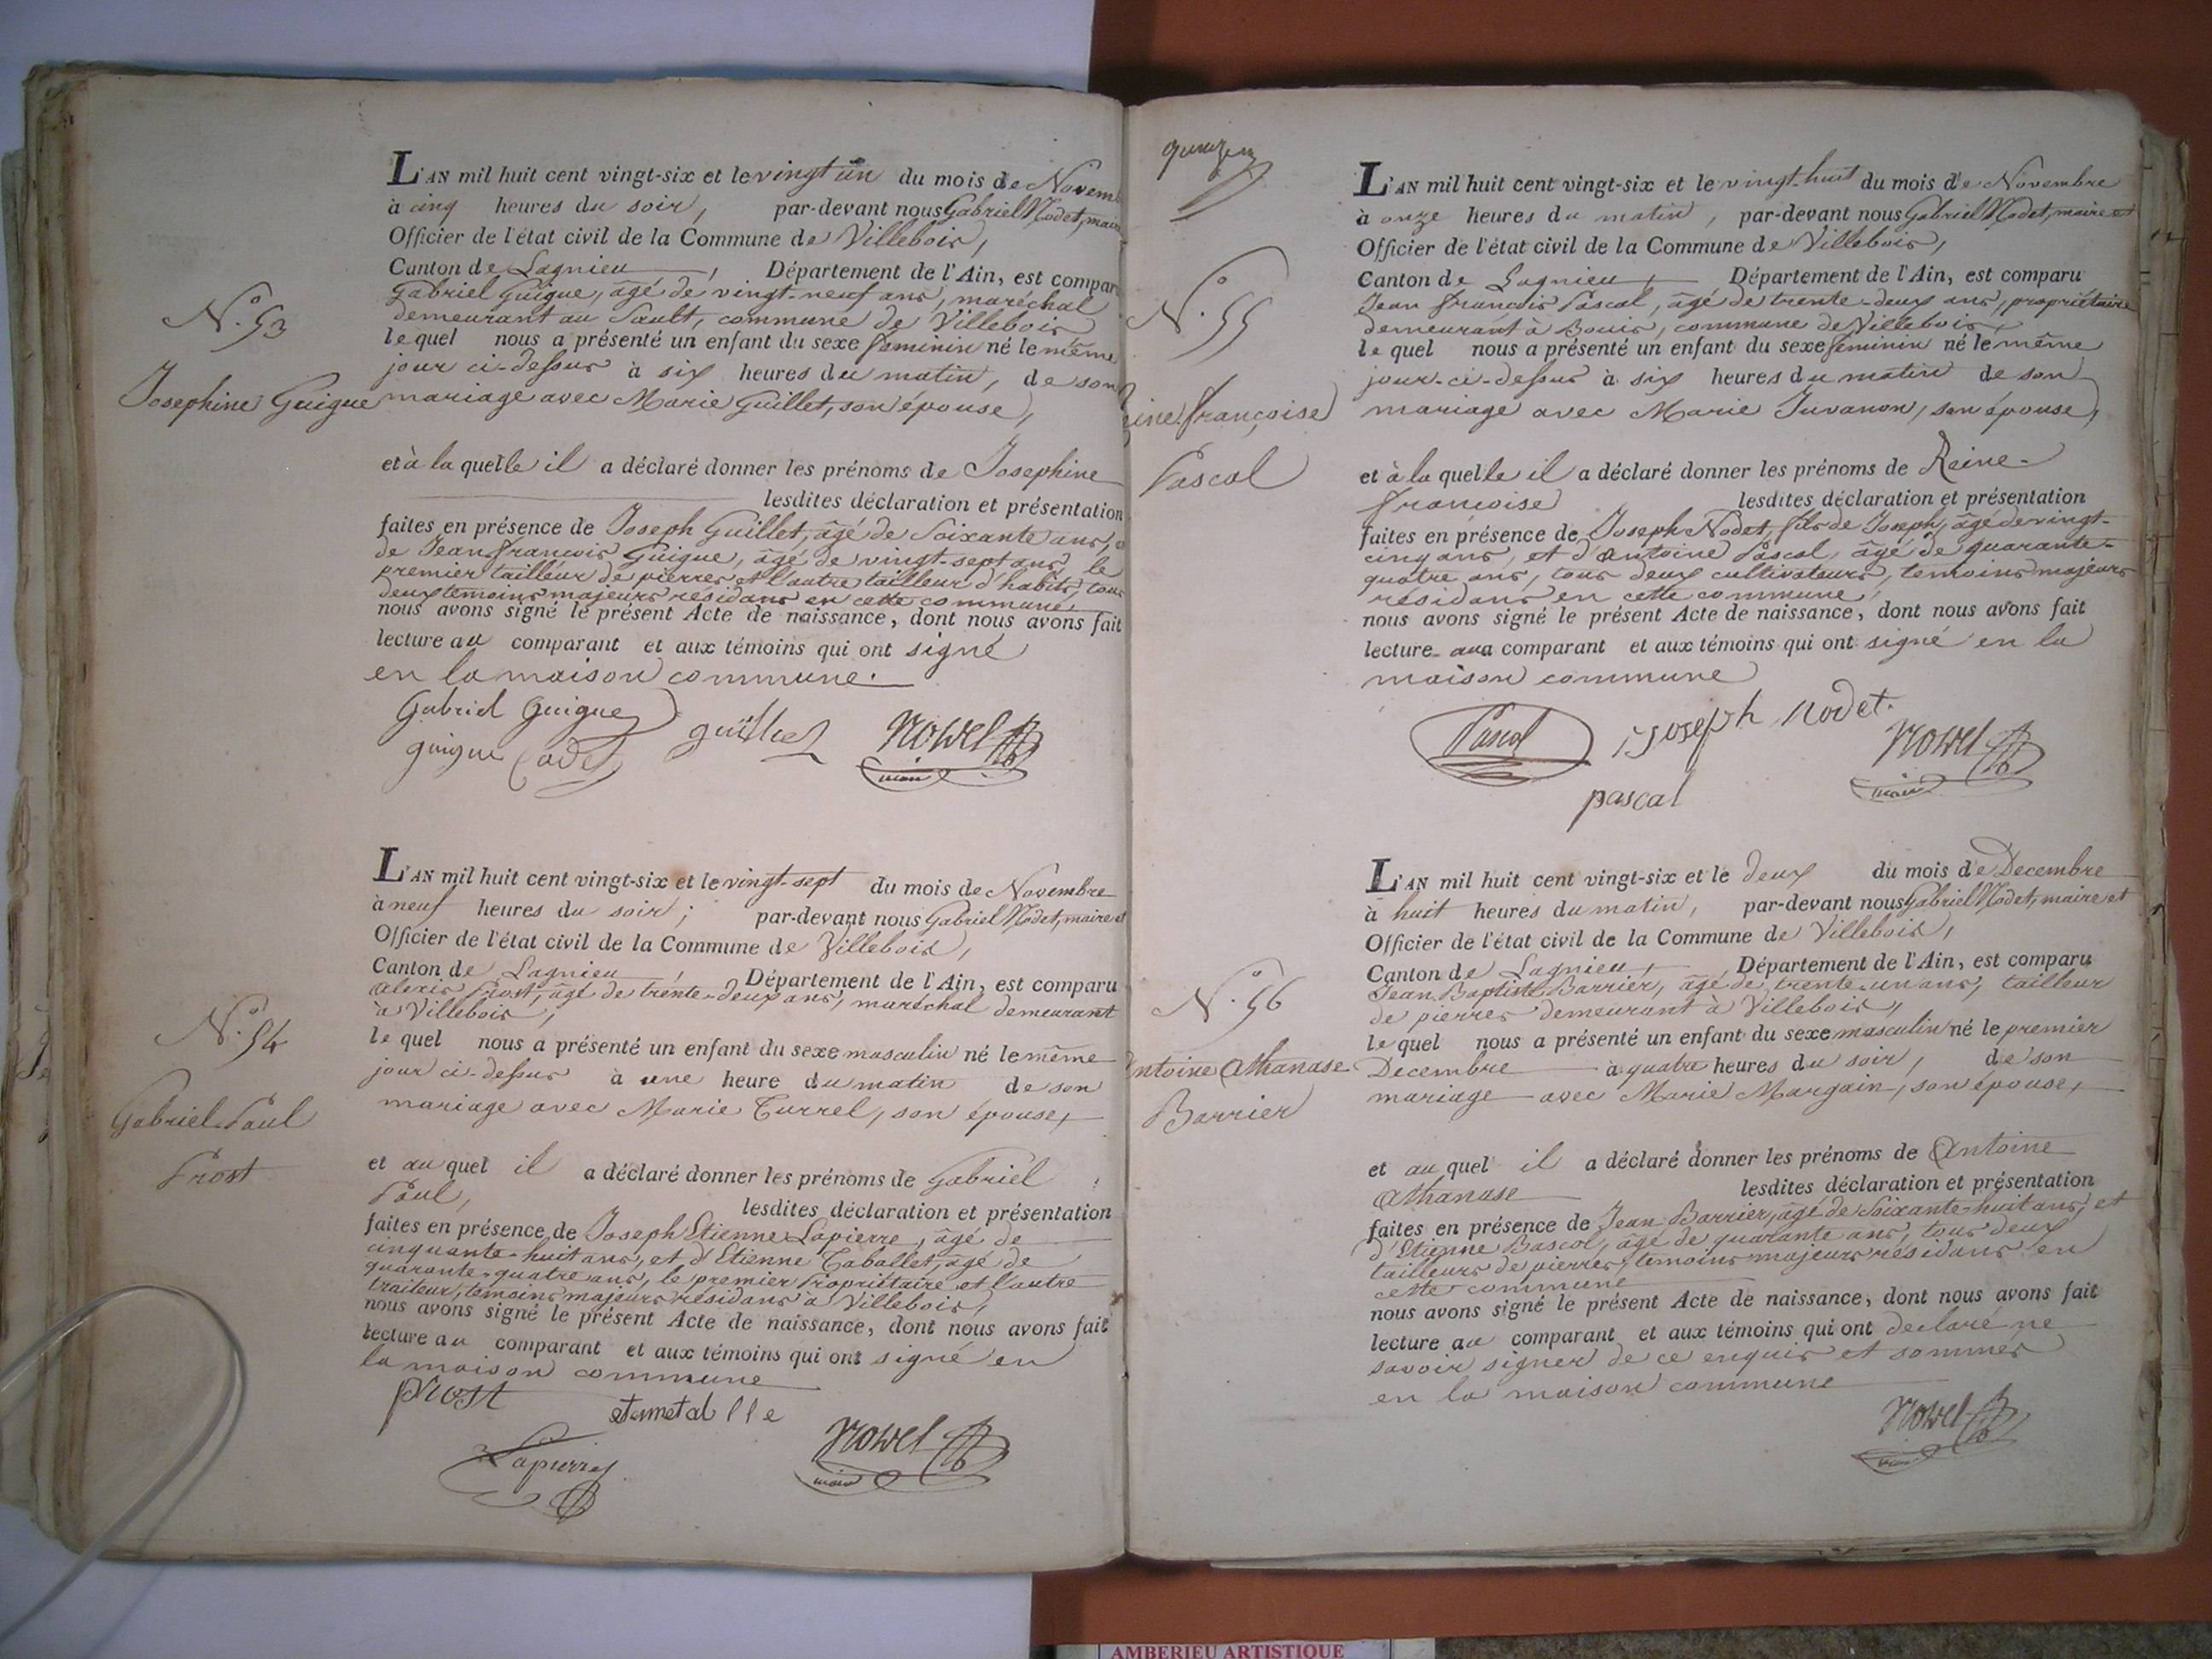 L'AN mil huit cent vingt-six et le vingt un du mois de Novemb
à cinq heures du soir, par-devant nous Gabriel Nodet, maire
Officier de l'état civil de la Commune de Villebois,
Canton de Lagnieu, Département de l'Ain, est compar
Gabriel Guigue, âgé de vingt-neuf ans, maréchal
demeurant au Sault, commune de Villebois
le quel nous a présenté un enfant du sexe féminin né le même
jour ci-dessus à six heures du matin, de son
mariage avec Marie Guillet, son épouse,
N.° 53
Josephine Guigue
et à la quelle il a déclaré donner les prénoms de Josephine
lesdites déclaration et présentation
faites en présence de Joseph Guillet, âgé de Soixante ans,
de Jean francois Guigue, âgé de vingt-sept ans, le
premier tailleur de pierres et l'autre tailleur d'habits, tous
deux temoins majeurs residans en cette commune,
nous avons signé le présent Acte de naissance, dont nous avons fait
lecture au comparant et aux témoins qui ont signé
en la maison commune.
Gabriel Guigue
guigue cadet
guillet
Nodet
maire
L'AN mil huit cent vingt-six et le vingt-sept du mois de Novembre
à neuf heures du soir; par-devant nous Gabriel Nodet, maire et
Officier de l'état civil de la Commune de Villebois,
Canton de Lagnieu, Département de l'Ain, est comparu
alexis Prost, âgé de trente-deux ans, maréchal demeurant
à Villebois,
le quel nous a présenté un enfant du sexe masculin né le même
jour ci-dessus à une heure du matin de son
mariage avec Marie Turrel, son épouse,
N.° 54
Gabriel-Paul
Prost
et au quel il a déclaré donner les prénoms de Gabriel
Paul,
lesdites déclaration et présentation
faites en présence de Joseph Etienne Lapierre, âgé de
cinquante-huit ans, et d'Etienne Taballet, âgé de
quarante-quatre ans, le premier Propriétaire et l'autre
traiteur, temoins majeurs residans à Villebois,
nous avons signé le présent Acte de naissance, dont nous avons fait
lecture au comparant et aux témoins qui ont signé en
la maison commune
prost
Lapierre
Nodet
maire
L'AN mil huit cent vingt-six et le vingt-huit du mois de Novembre
à onze heures du matin, par-devant nous Gabriel Nodet, maire et
Officier de l'état civil de la Commune de Villebois,
Canton de Lagnieu, Département de l'Ain, est comparu
Jean francois Pascal, âgé de trente-deux ans, propriétaire
demeurant à Bouis, commune de Villebois,
le quel nous a présenté un enfant du sexe féminin né le même
jour-ci-dessus à six heures du matin de son
mariage avec Marie Juvanon, son épouse,
N.° 55
eine françoise
Pascal
et à la quelle il a déclaré donner les prénoms de Reine-
francoise
lesdites déclaration et présentation
faites en présence de Joseph Nodet, fils de Joseph, âgé de vingt-
cinq ans, et d'antoine Pascal, âgé de quarante-
quatre ans, tous deux cultivateurs, temoins majeurs
résidans en cette commune,
nous avons signé le présent Acte de naissance, dont nous avons fait
lecture au comparant et aux témoins qui ont signé en la
maison commune
Pascal
joseph nodet.
Nodet
maire
pascal
L'AN mil huit cent vingt-six et le deux du mois de Decembre
à huit heures du matin, par-devant nous Gabriel Nodet, maire et
Officier de l'état civil de la Commune de Villebois,
Canton de Lagnieu, Département de l'Ain, est comparu
Jean Baptiste Barrier, âgé de trente-un ans, tailleur
de pierres demeurant à Villebois,
le quel nous a présenté un enfant du sexe masculin né le premier
Decembre à quatre heures du soir, de son
mariage avec Marie Margain, son épouse,
N.° 56
ntoine Athanase
Barrier
et au quel il a déclaré donner les prénoms de Antoine
Athanase
lesdites déclaration et présentation
faites en présence de Jean Barrier, âgé de Soixante-huit ans, et
d'Etienne Bascol, âgé de quarante ans, tous deux
tailleurs de pierres, temoins majeurs résidans en
cette commune
nous avons signé le présent Acte de naissance, dont nous avons fait
lecture au comparant et aux témoins qui ont declaré ne
savoir signer de ce enquis et sommés
en la maison commune
Nodet
maire
AMBERIEU ARTISTIQUE